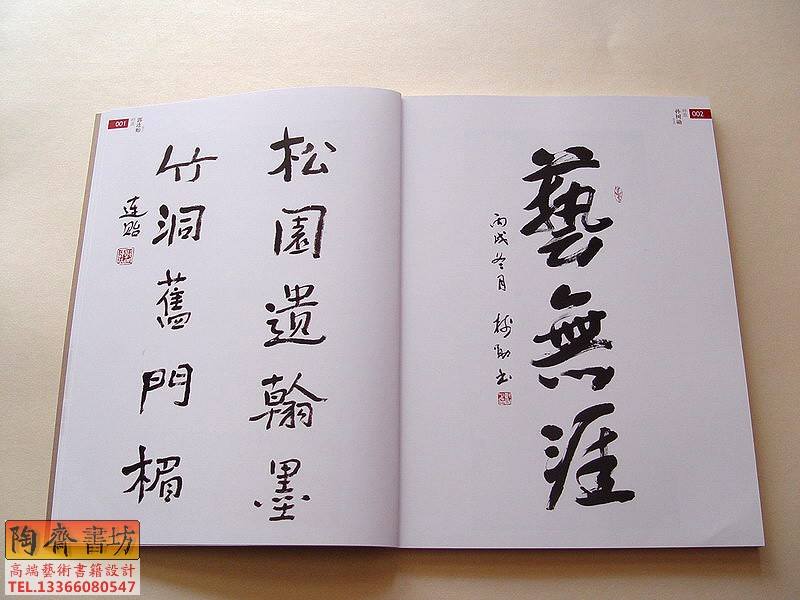 001
郭连贻
松園遺翰墨
竹洞舊門楣
連貽
002
孙树勋
藝無涯
丙戌冬月
樹勛书
陶齊書坊
高端藝術書籍設計
TEL.13366080547